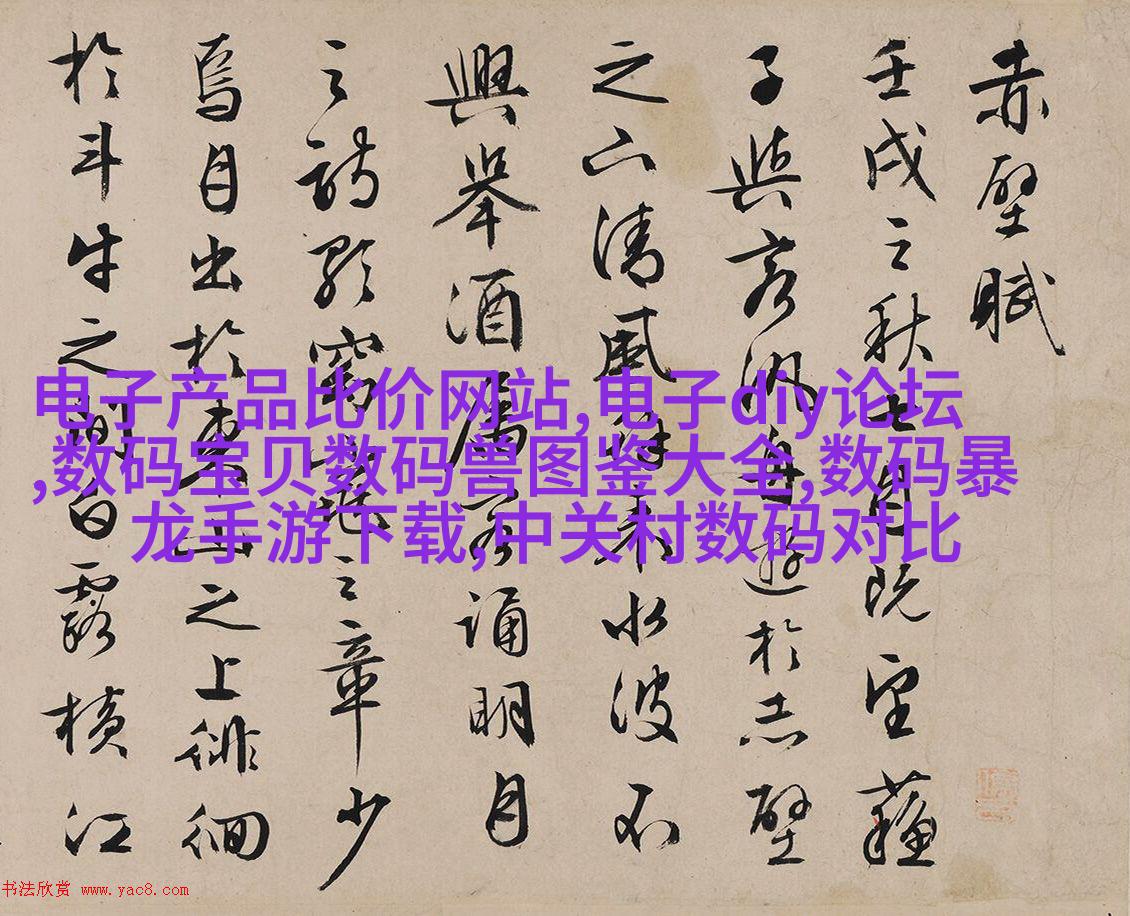 赤壁賦
壬戌之秋七月既望蘇
子與客汎舟遊於赤壁
之下清風徐來水波不
興舉酒屬客誦明月
之詩歌窈窕之章少
焉月出於東山之上徘徊
於斗牛之間白露橫江
电子产品比价网站,电子diy论坛
,数码宝贝数码兽图鉴大全,数码暴
龙手游下载,中关村数码对比
书法欣赏 www.yac8.com